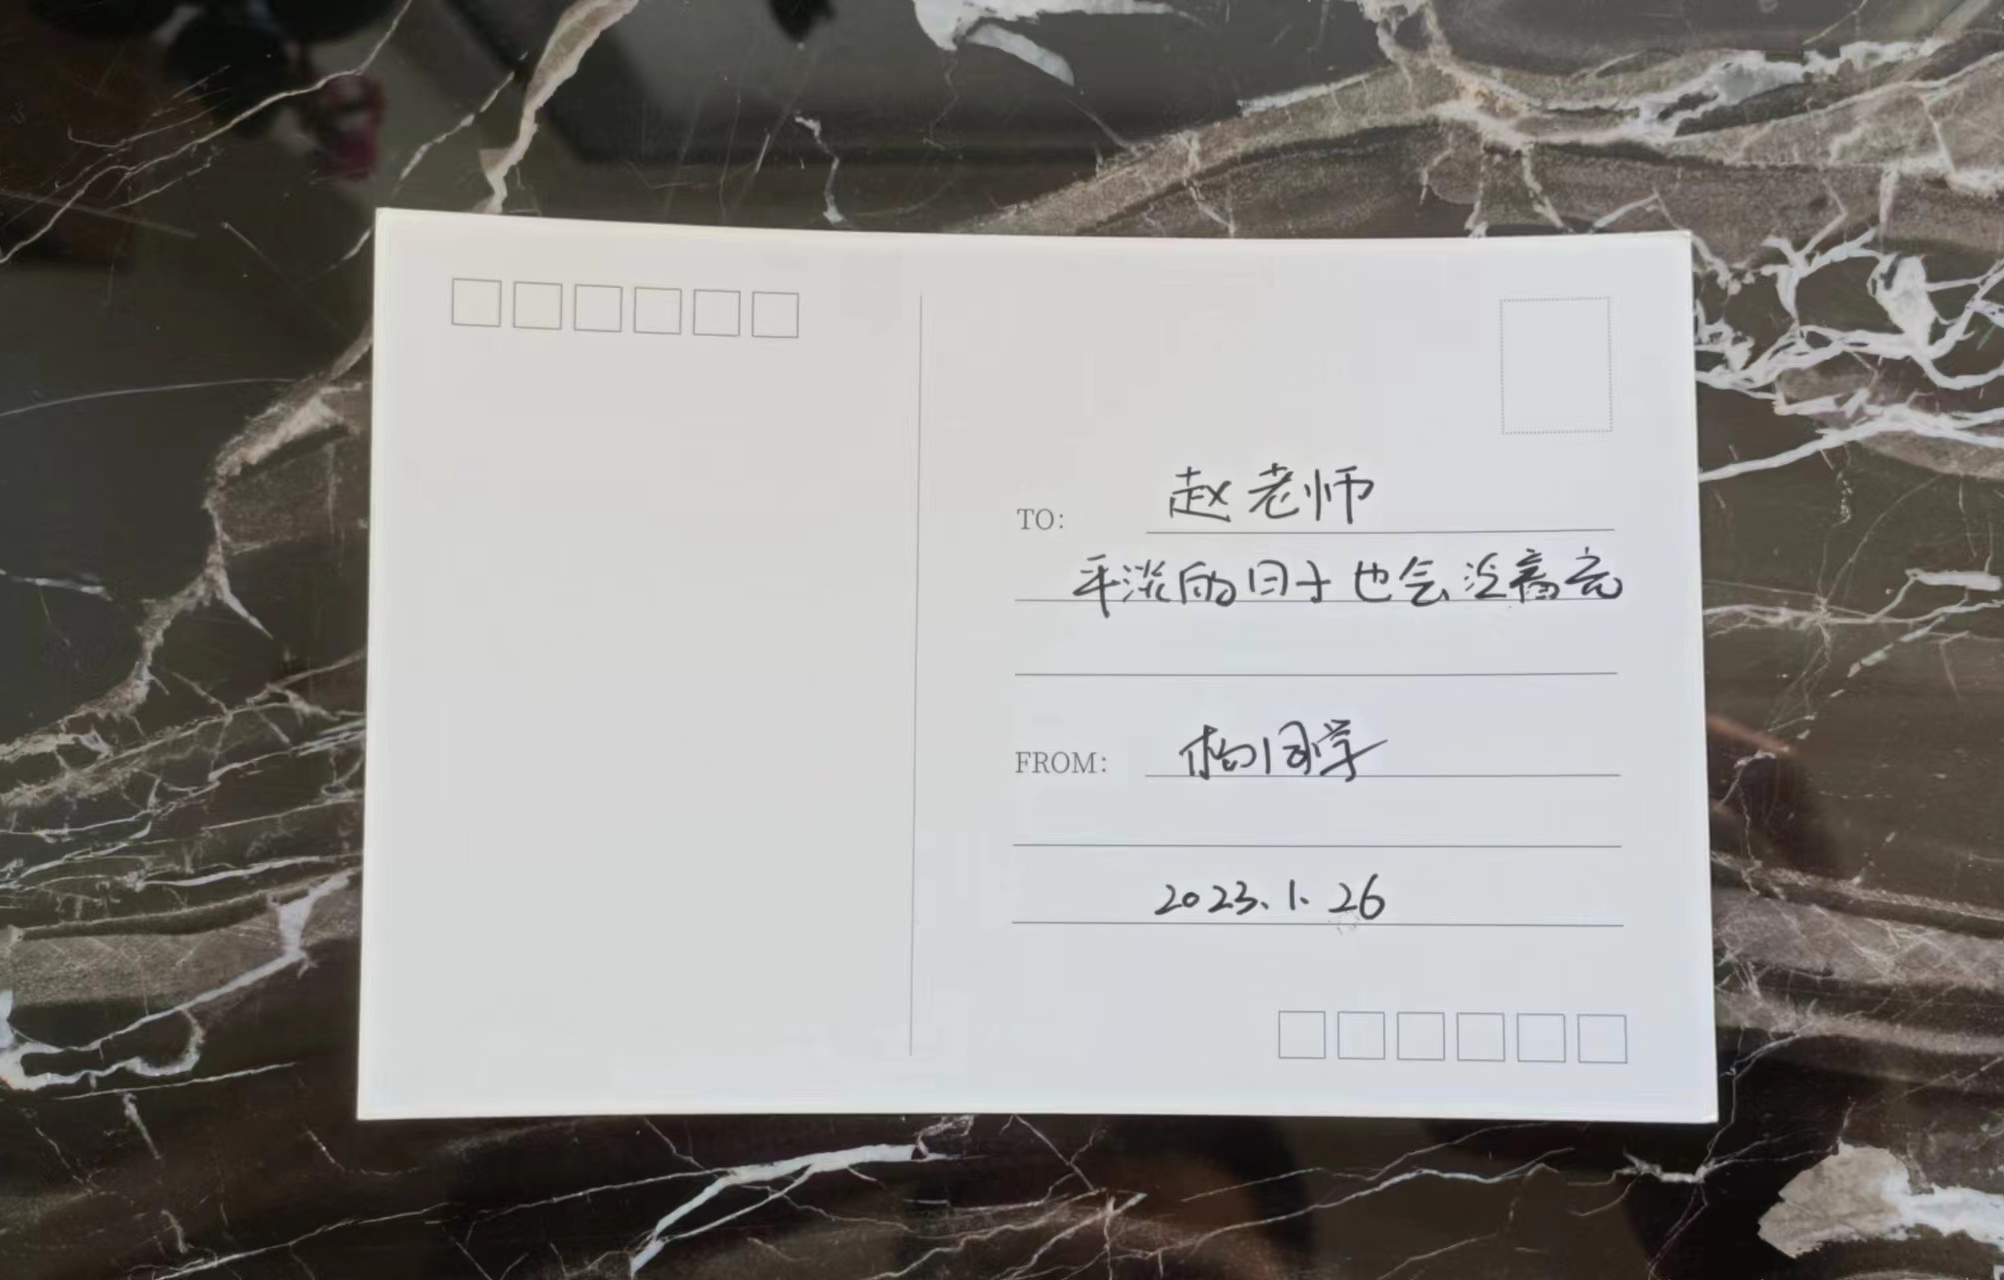 TO: 赵老师
平淡的日子也会泛着亮
FROM: 杨同学
2023.1.26